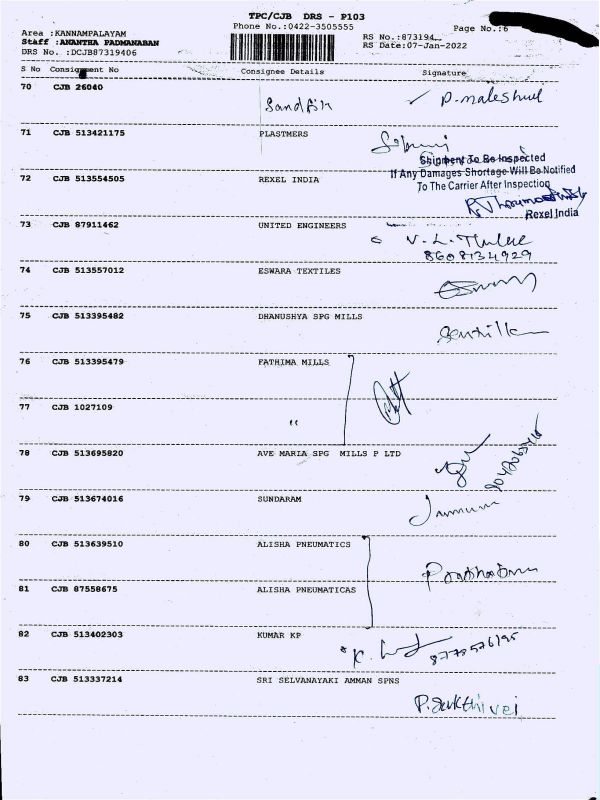 TPC/CJB DRS - P103
Phone No.:0422-3505555
Page No.:6
Area :KANNAMPALAYAM
Staff :ANANTHA PADMANABAN
DRS No. :DCJB87319406
RS No.:873194
RS Date:07-Jan-2022
S No Consignment No Consignee Details Signature
70 CJB 26040 Sandfik P. maleshwl
71 CJB 513421175 PLASTMERS
Shipment To Be Inspected
If Any Damages Shortage Will Be Notified
To The Carrier After Inspection
72 CJB 513554505 REXEL INDIA
Rexel India
73 CJB 87911462 UNITED ENGINEERS
8608134929
74 CJB 513557012 ESWARA TEXTILES
75 CJB 513395482 DHANUSHYA SPG MILLS
76 CJB 513395479 FATHIMA MILLS
77 CJB 1027109 "
78 CJB 513695820 AVE MARIA SPG MILLS P LTD
79 CJB 513674016 SUNDARAM
80 CJB 513639510 ALISHA PNEUMATICS
81 CJB 87558675 ALISHA PNEUMATICAS
82 CJB 513402303 KUMAR KP
83 CJB 513337214 SRI SELVANAYAKI AMMAN SPNS
P. Sakthivel